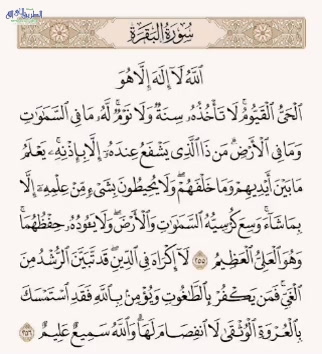 سُورَةُ البَقَرَةِ
اللَّهُ لَآ إِلَٰهَ إِلَّا هُوَ
الْحَيُّ الْقَيُّومُ ۚ لَا تَأْخُذُهُۥ سِنَةٌ وَلَا نَوْمٌ ۚ لَّهُۥ مَا فِي السَّمَٰوَٰتِ
وَمَا فِي الْأَرْضِ ۗ مَن ذَا الَّذِي يَشْفَعُ عِندَهُۥٓ إِلَّا بِإِذْنِهِۦ ۚ يَعْلَمُ
مَا بَيْنَ أَيْدِيهِمْ وَمَا خَلْفَهُمْ ۖ وَلَا يُحِيطُونَ بِشَيْءٍ مِّنْ عِلْمِهِۦٓ إِلَّا
بِمَا شَآءَ ۚ وَسِعَ كُرْسِيُّهُ السَّمَٰوَٰتِ وَالْأَرْضَ ۖ وَلَا يَـُٔودُهُۥ حِفْظُهُمَا ۚ
وَهُوَ الْعَلِيُّ الْعَظِيمُ ٢٥٥ لَآ إِكْرَاهَ فِي الدِّينِ ۖ قَد تَّبَيَّنَ الرُّشْدُ مِنَ
الْغَيِّ ۚ فَمَن يَكْفُرْ بِالطَّٰغُوتِ وَيُؤْمِنۢ بِاللَّهِ فَقَدِ اسْتَمْسَكَ
بِالْعُرْوَةِ الْوُثْقَىٰ لَا انفِصَامَ لَهَا ۗ وَاللَّهُ سَمِيعٌ عَلِيمٌ ٢٥٦